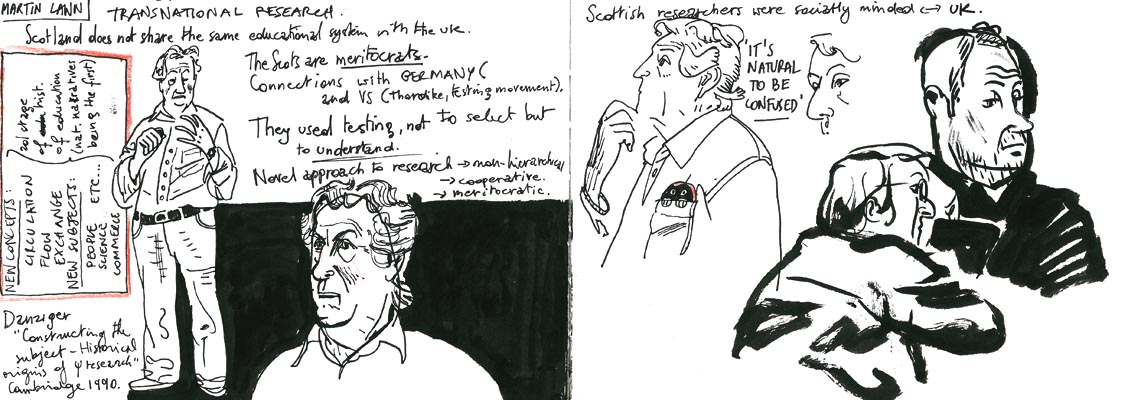 MARTIN LANN
TRANSNATIONAL RESEARCH.
Scotland does not share the same educational system with the UK.
The Scots are meritocrats.
Connections with GERMANY (
and VS (Thordike, testing movement).
They used testing, not to select but
to understand.
Novel approach to research → non-hierarchical
→ cooperative.
→ meritocratic.
2d stage
of hist.
of education
(nat. narratives
being the first)
NEW CONCEPTS:
CIRCULATION
FLOW
EXCHANGE
NEW SUBJECTS:
PEOPLE ETC...
SCIENCE
COMMERCE
Danziger
"Constructing the
subject - Historical
origins of ψ research"
Cambridge 1990.
Scottish researchers were socially minded ↔ UK.
'IT'S
NATURAL
TO BE
CONFUSED'